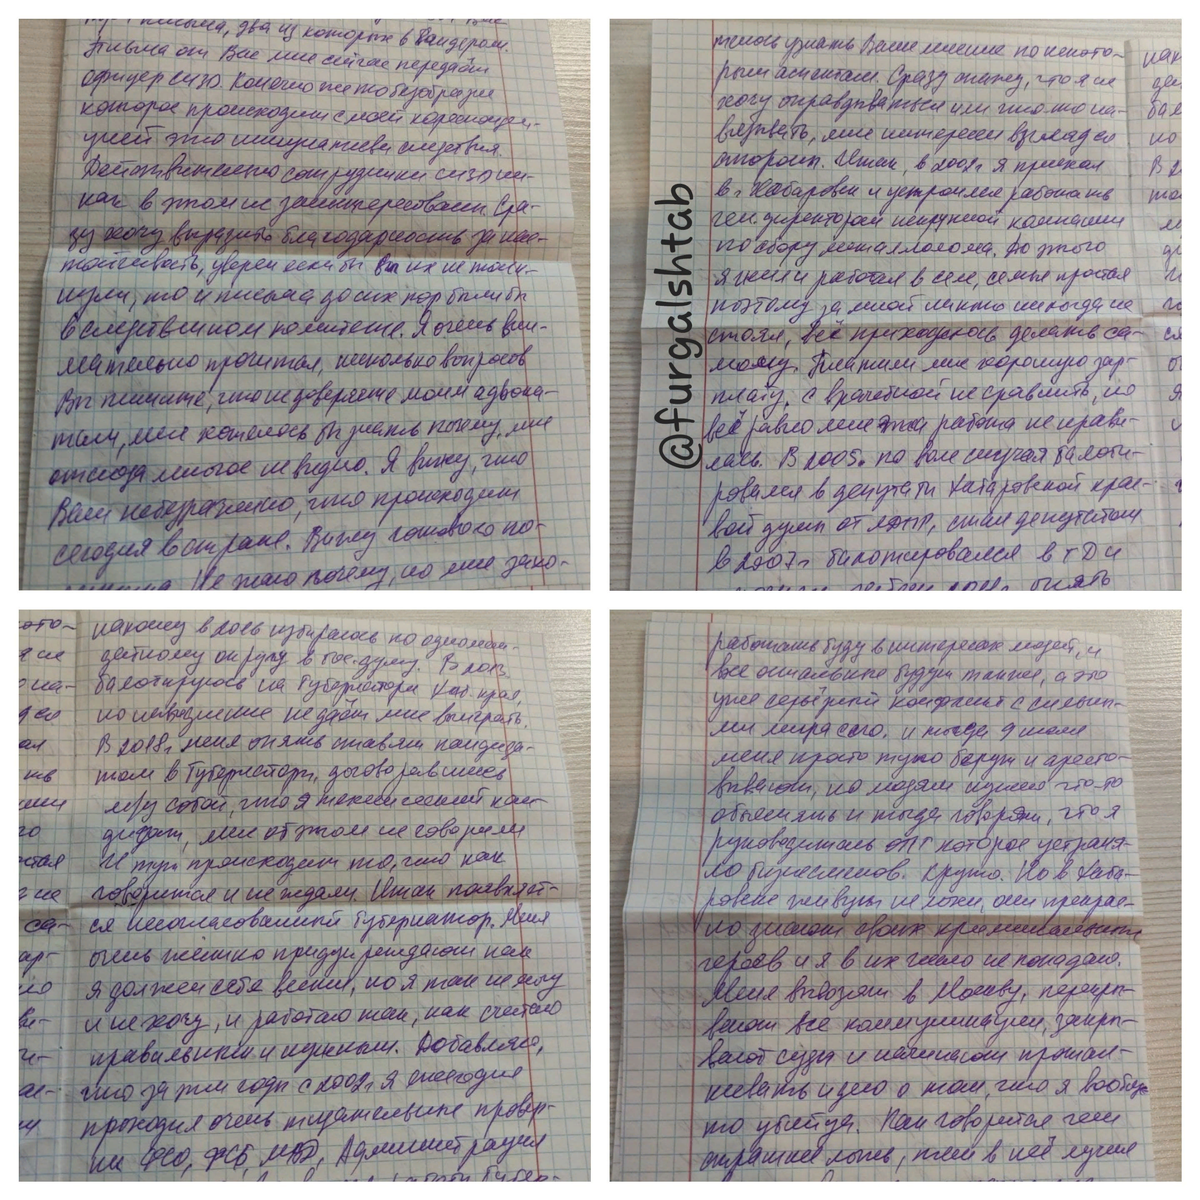 письма, два из которых в
Письма от Вас мне сейчас передаёт
офицер сизо. Конечно же то безобразие
которое происходит с моей кореспонден-
цией это инициатива следствия.
Действительно сотрудники сизо ни-
как в этом не заинтересованы. Сра-
зу хочу выразить благодарность за нас-
тойчивость, уверен если бы Вы их не
то и письма до сих пор были бы
в следственном комитете. Я очень вни-
мательно прочитал, несколько вопросов
Вы пишите, что не доверяете моим адвока-
там, мне хотелось бы знать почему, мне
отсюда многое не видно. Я вижу, что
Вам небезразлично, что происходит
сегодня в стране. Вижу
Не знаю почему, но мне захо-
телось узнать Ваше мнение по некото-
рым аспектам. Сразу скажу, что я не
хочу оправдываться или что-то на-
вязывать, мне интересен взгляд со
стороны. Итак, в 2002г я приехал
в г. Хабаровск и устроился работать
ген. директором некрупной компании
по сбору металлолома. До этого
я жил и работал в селе, семья простая
поэтому за мной никто никогда не
стоял, всё приходилось делать са-
мому. Платили мне хорошую зар-
плату, с врачебной не сравнить, но
всё равно мне эта работа не нрави-
лась. В 2005г по воле случая балоти-
ровался в депутаты Хабаровской крае-
вой думы от ЛДПР, стал депутатом
в 2007г балотировался в ГД и
опять
@furgalshtab
в 2016 избираюсь по одноман-
датному округу в Гос. думу. В 2013
балотируюсь на Губернатора Хаб. края,
но невезение не даёт мне выиграть.
В 2018г меня опять ставят кандида-
том в Губернаторы, договорившись
м/у собой, что я технический кан-
дидат, мне об этом не говорили
И тут происходит то, что как
говорится и не ждали. Итак появляет-
ся несогласованный Губернатор. Меня
очень жёстко предупреждают как
я должен себя вести, но я так не могу
и не хочу, и работаю так, как считаю
правильным и нужным. Добавляю,
что за эти годы с 2002г я ежегодно
проходил очень тщательные провер-
ки ФСО, ФСБ, МВД, Администрация
работать буду в интересах людей, и
все остальные будут также, а это
уже серьёзный конфликт с сильны-
ми мира сего. И тогда 9 июля
меня просто тупо берут и аресто-
вывают, но людям нужно что-то
объяснять и тогда говорят, что я
руководитель ОПГ которое устраня-
ло бизнесменов. Круто. Но в Хаба-
ровске живут не лохи, они прекрас-
но знают своих криминальных
героев и я в их число не попадаю.
Меня вывозят в Москву, перекры-
вают все коммуникации, закры-
вают суды и начинают протал-
кивать идею о том, что я вообще
то убийца. Как говорится чем
страшнее ложь, тем в неё лучше